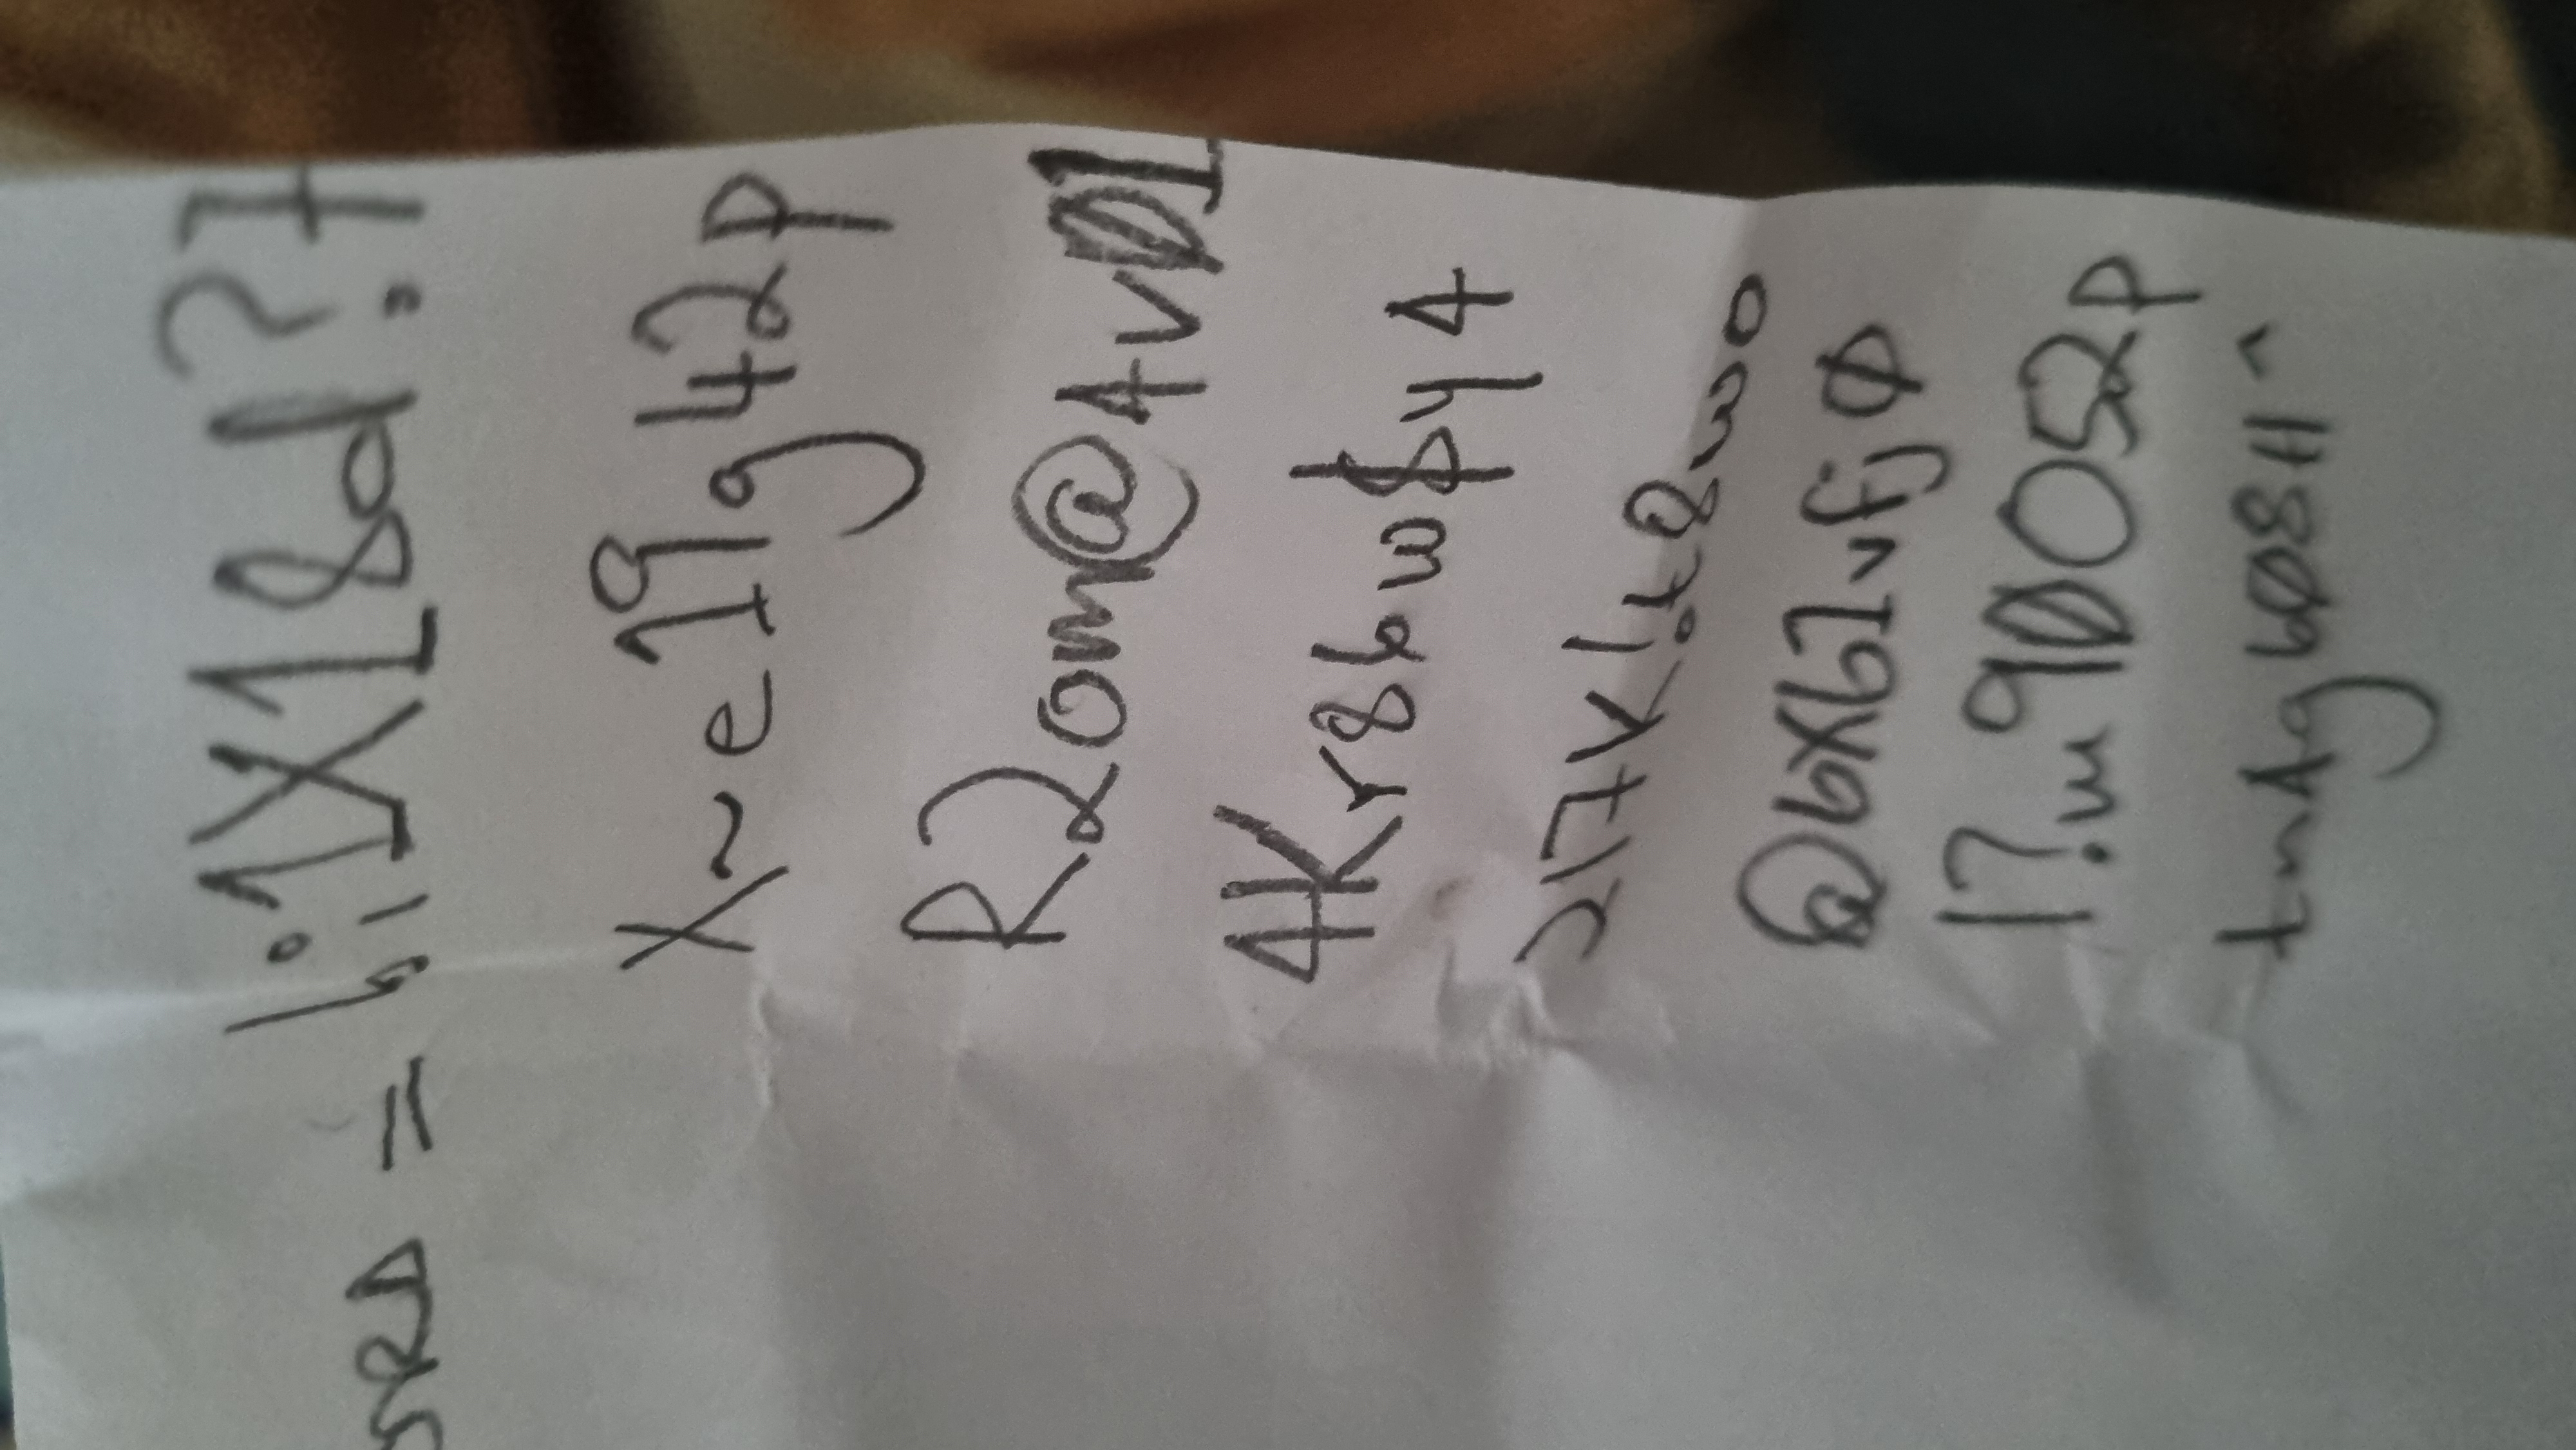 ORD = !;1X18d?7
X~e19g42p
R2om@4vØ1
4Kr86w$y4
217K!t8wo
@6X61vfjØ
!?m9ØO52p
tn4g6Ø8H^